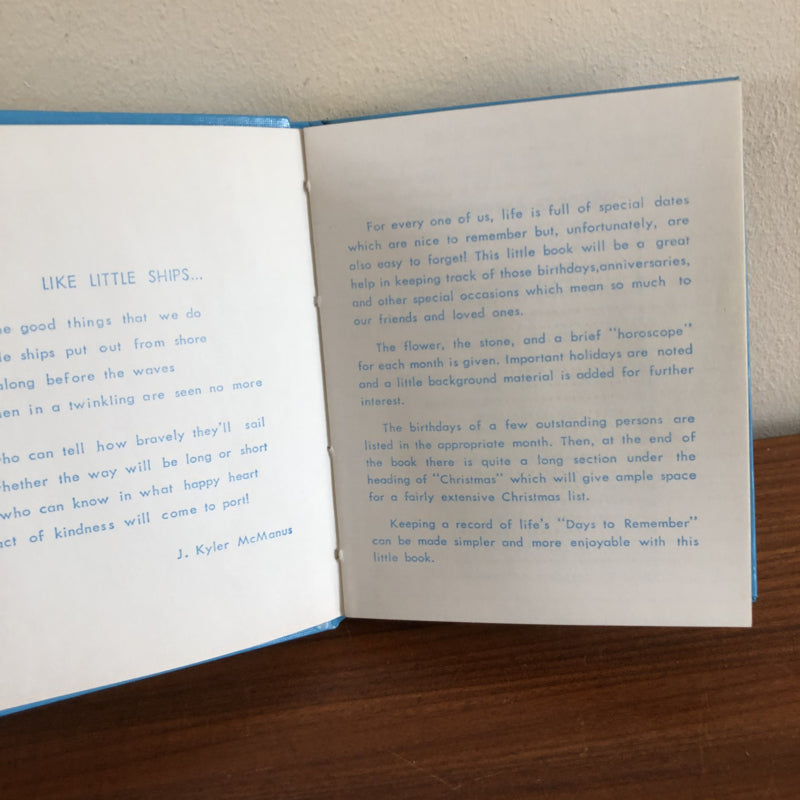 LIKE LITTLE SHIPS...
good things that we do
ships put out from shore
along before the waves
in a twinkling are seen no more
who can tell how bravely they'll sail
whether the way will be long or short
who can know in what happy heart
act of kindness will come to port!
J. Kyler McManus
For every one of us, life is full of special dates
which are nice to remember but, unfortunately, are
also easy to forget! This little book will be a great
help in keeping track of those birthdays,anniversaries,
and other special occasions which mean so much to
our friends and loved ones.
The flower, the stone, and a brief "horoscope"
for each month is given. Important holidays are noted
and a little background material is added for further
interest.
The birthdays of a few outstanding persons are
listed in the appropriate month. Then, at the end of
the book there is quite a long section under the
heading of "Christmas" which will give ample space
for a fairly extensive Christmas list.
Keeping a record of life's "Days to Remember"
can be made simpler and more enjoyable with this
little book.